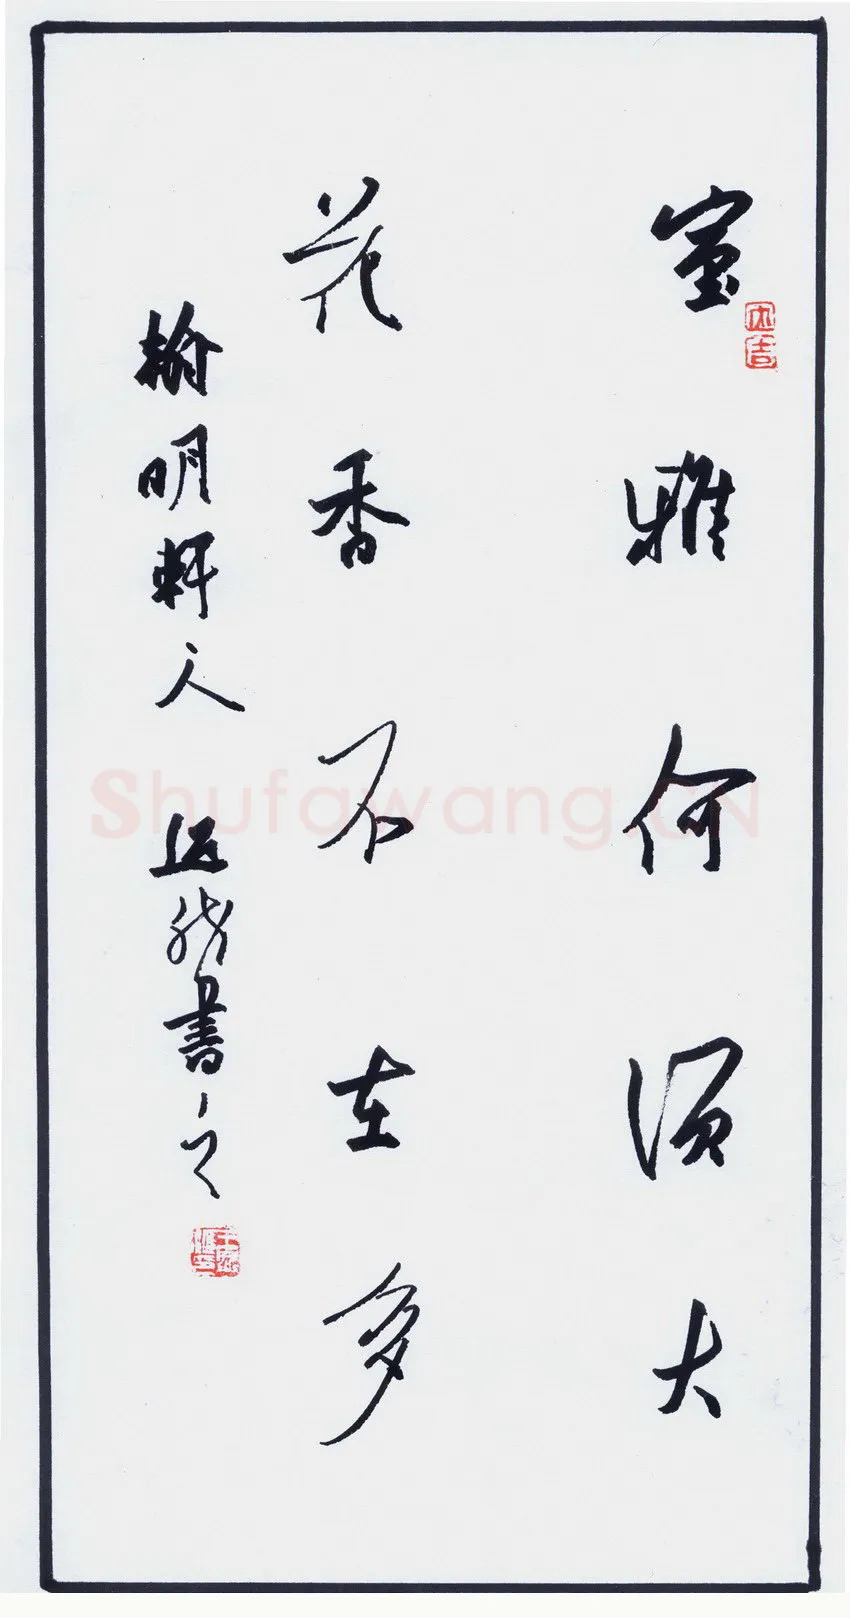 室雅何须大
花香不在多
榆明轩人 远彬書之
Shufawang.CN